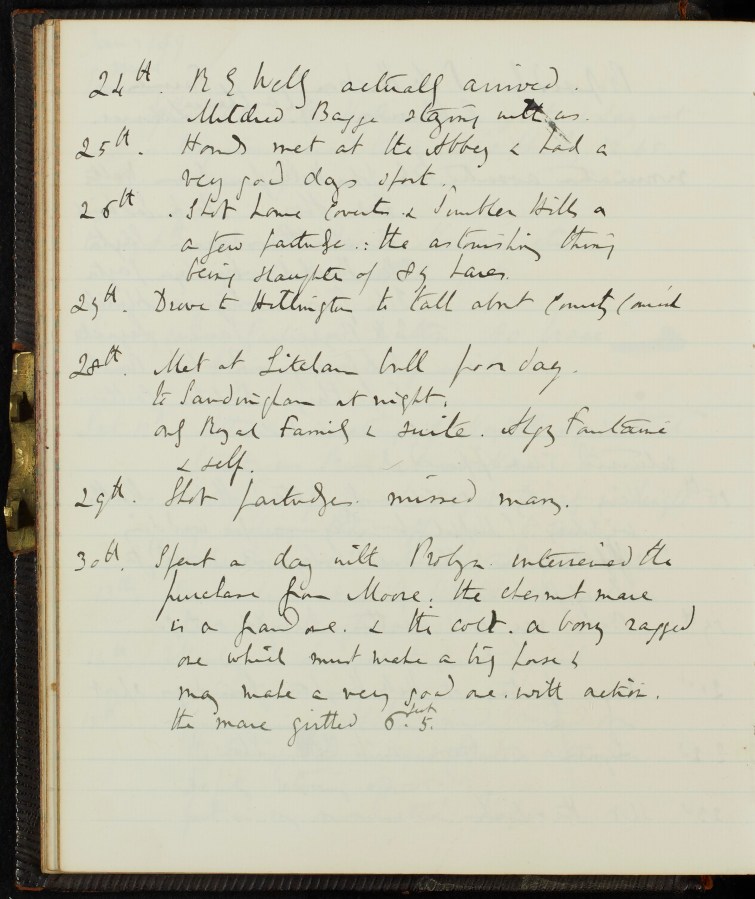 24th. R E Wells actually arrived.
Mildred Bagge staying with us.
25th. Hounds met at the Abbey & had a
very good days sport.
26th. Shot Home Coverts & Hills a
a few partridge: the astonishing thing
being slaughter of 89 hares.
29th. Drove to Hillington to talk about County Council
28th. Met at Litcham bull poor day.
to Sandringham at night.
only Royal Family & suite. Algy Fountaine
& self.
29th. Shot partridges. missed many.
30th. Spent a day with Probyn. interviewed the
purchase from Moore: the chesnut mare
is a grand one. & the colt. a bony ragged
one which must make a big horse &
may make a very good one. with action.
the mare girtted 6 feet. 5.